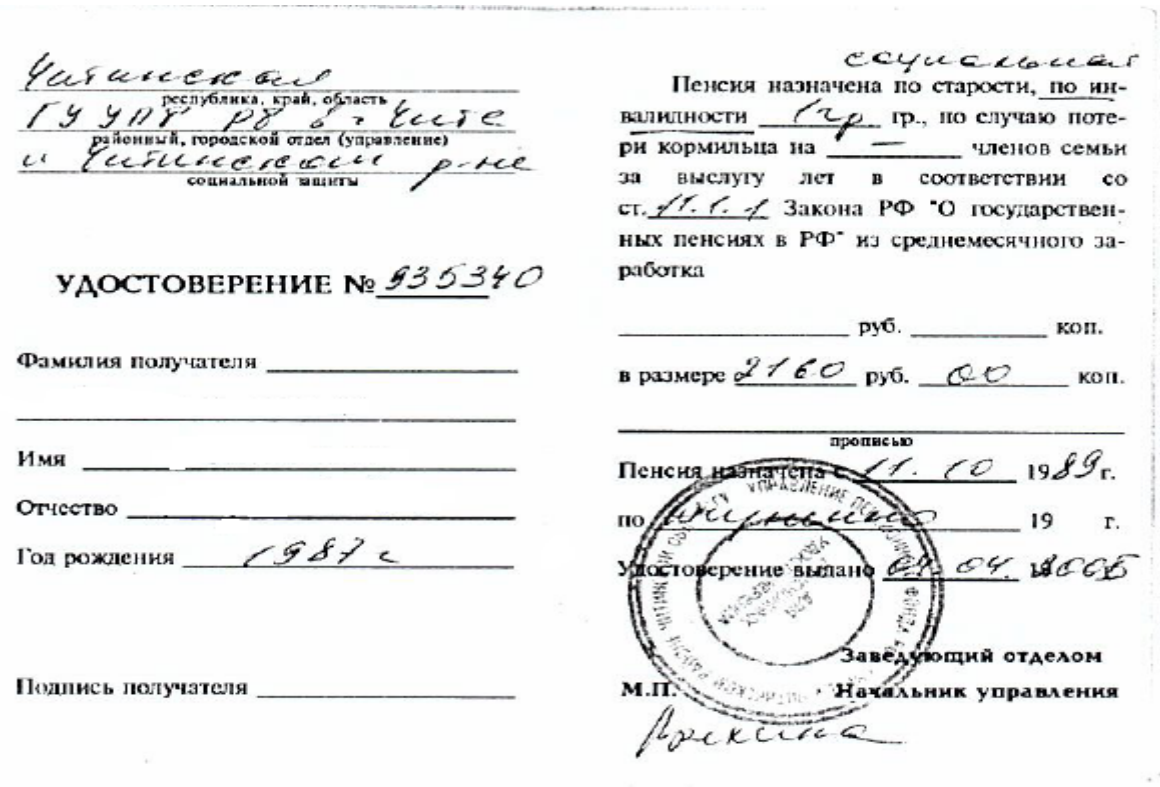 Читинская
республика, край, область
ГУ УПФ РФ в г. Чите
районный, городской отдел (управление)
и Читинском р-не
социальной защиты
УДОСТОВЕРЕНИЕ № 935340
Фамилия получателя
Имя
Отчество
Год рождения 1987 г
Подпись получателя
социальная
Пенсия назначена по старости, по ин-
валидности 1 гр гр., по случаю поте-
ри кормильца на — членов семьи
за выслугу лет в соответствии со
ст. 11.1.1 Закона РФ "О государствен-
ных пенсиях в РФ" из среднемесячного за-
работка
руб. коп.
в размере 2160 руб. 00 коп.
прописью
Пенсия назначена с 11. 10 1989 г.
по 19 г.
Удостоверение выдано 04. 2005
Заведующий отделом
М.П. Начальник управления